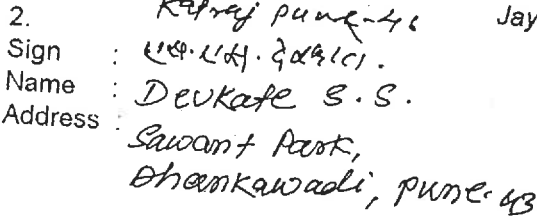 2. Katraj pune-46 Jay
Sign :
Name : Devkate S. S.
Address : Sawant Park,
Dhankawadi, pune-43